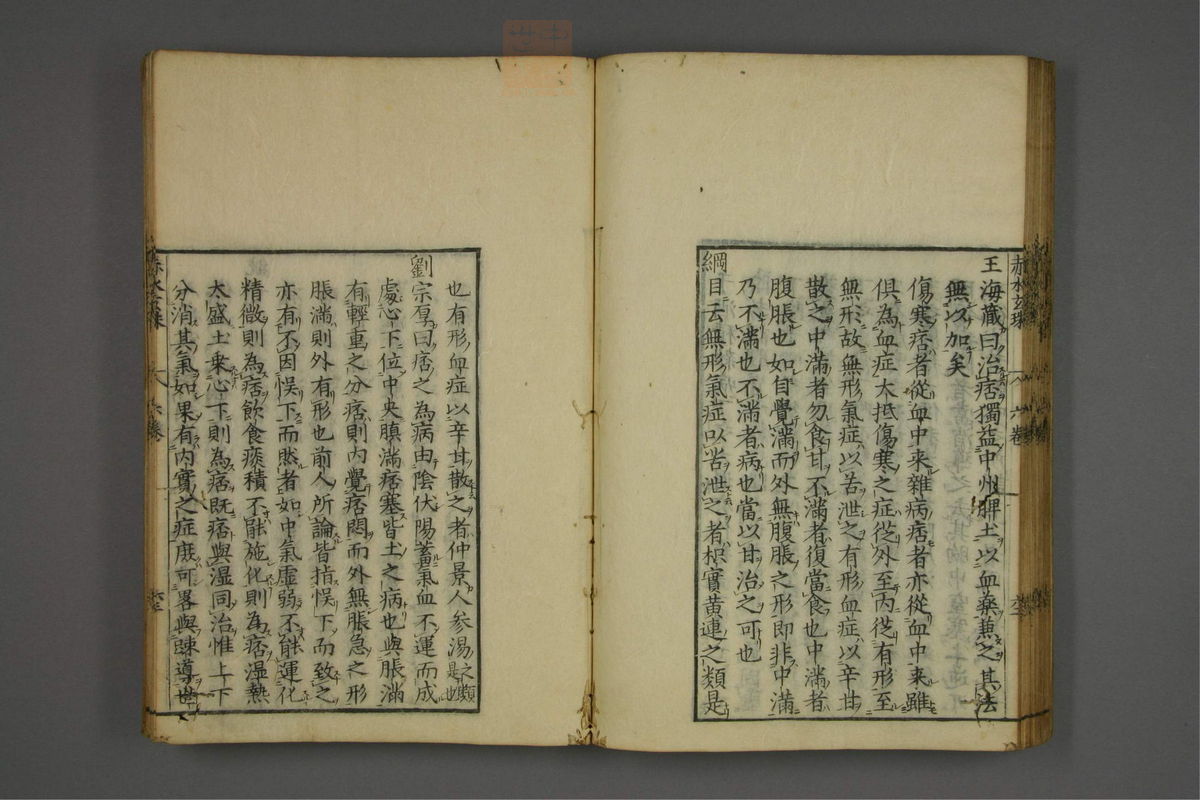 赤水玄珠 六卷
王海藏曰治痞獨益中州脾土以血藥兼之其法
無以加矣
傷寒痞者從血中来雜病痞者亦從血中来雖
俱為血症大抵傷寒之症從外至内從有形至
無形故無形氣症以苦泄之有形血症以辛甘
散之中滿者勿食甘不滿者復當食也中滿者
腹脹也如自覺滿而外無腹脹之形即非中滿
乃不滿也不滿者病也當以甘治之可也
綱目云無形氣症以苦泄之者枳實黄連之類是
也有形血症以辛甘散之者仲景人参湯之類是也
劉宗厚曰痞之為病由陰伏陽蓄氣血不運而成
處心下位中央䐜滿痞塞皆土之病也與脹滿
有輕重之分痞則内覺痞悶而外無脹急之形
脹滿則外有形也前人所論皆指悞下而致之
亦有不因悞下而然者如中氣虛弱不能運化
精微則為痞飲食痰積不能施化則為痞湿熱
太盛土乗心下則為痞既痞與湿同治惟上下
分消其氣如果有内實之症庶可畧與踈導世